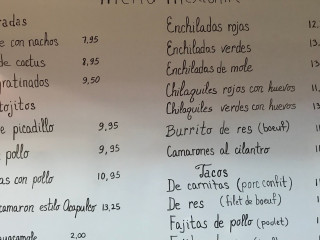 radas
e con nachos 7,95
de cactus 8,95
gratinados 9,50
tojitos
e picadillo 9,95
pollo 9,95
as con pollo 10,95
camaron estilo Acapulco 13,25
uacamole 2,00
Enchiladas rojas 12.
Enchiladas verdes 13.
Enchiladas de mole 13.
Chilaquiles rojos con huevos 11,
Chilaquiles verdes con huevos 13
Burrito de res (boeuf) 1
Camarones al cilantro 1
Tacos
De carnitas (porc confit) 1
De res (filet de boeuf) 1
Fajitas de pollo (poulet) 1